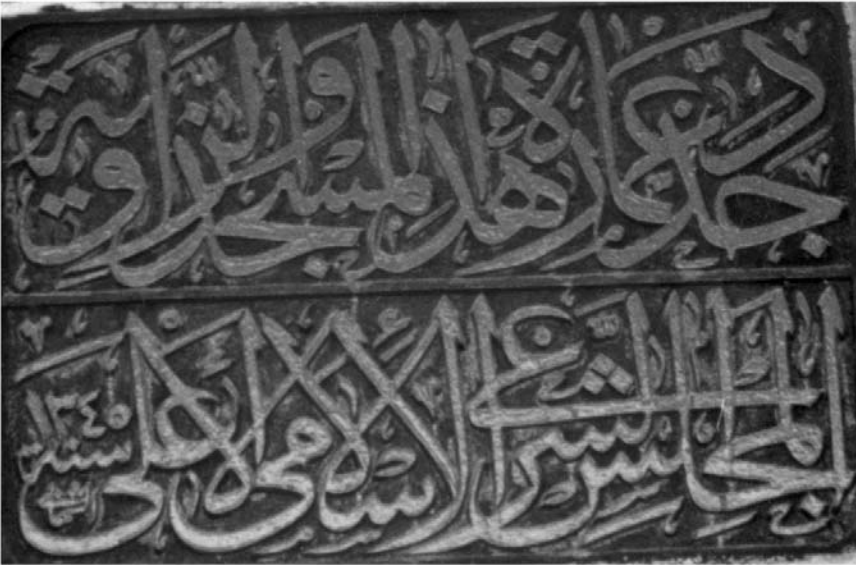 جدد عمارة هذا المسجد والزاوية
المجلس الشرعي الاسلامي الاعلى سنة ١٣٤٥